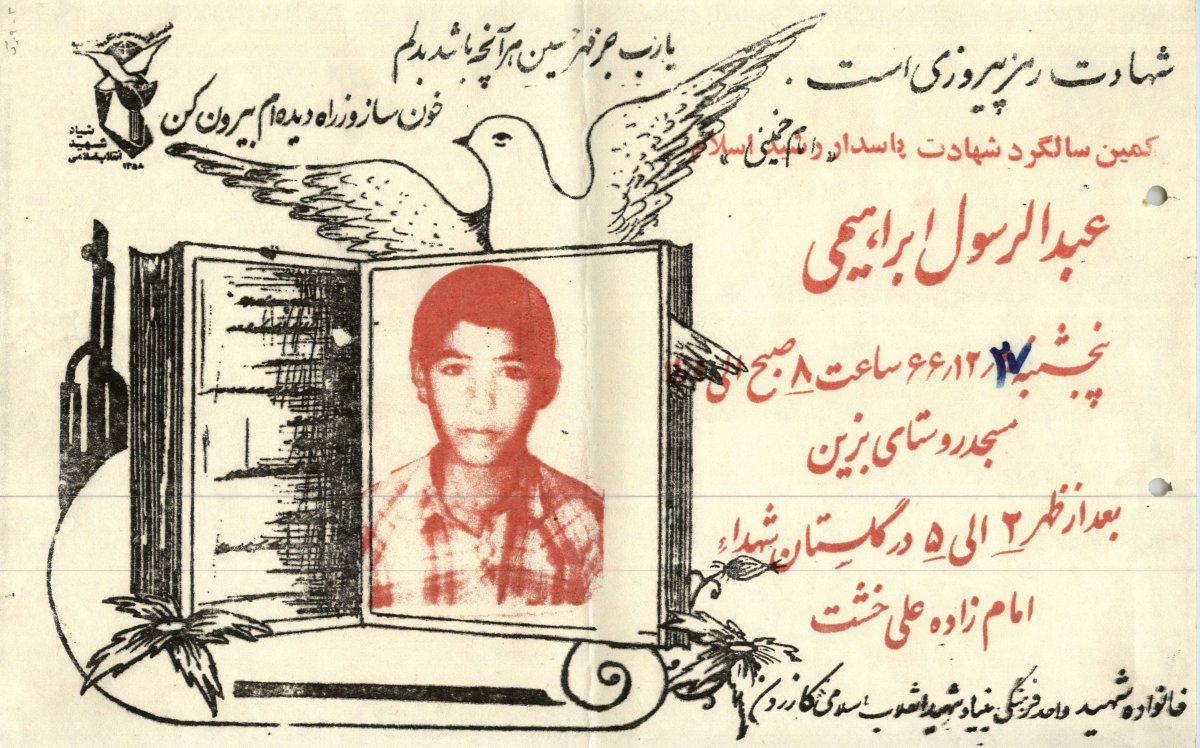 شهادت رمز پیروزی است .
"امام خمینی"
یارب جز مهر حسین هر آنچه باشد بدلم
خون ساز و ز راه دیده ام بیرون کن
بنیاد
شهید
انقلاب اسلامی
۱۳۵۸
یکمین سالگرد شهادت پاسدار رشید اسلام
عبدالرسول ابراهیمی
پنجشنبه ۲۷/۱۲/۶۶ ساعت ۸ صبح الی
مسجد روستای بزین
بعد از ظهر ۲ الی ۵ در گلستان شهداء
امام زاده علی خشت
خانواده شهید واحد فرهنگی بنیاد شهید انقلاب اسلامی کازرون